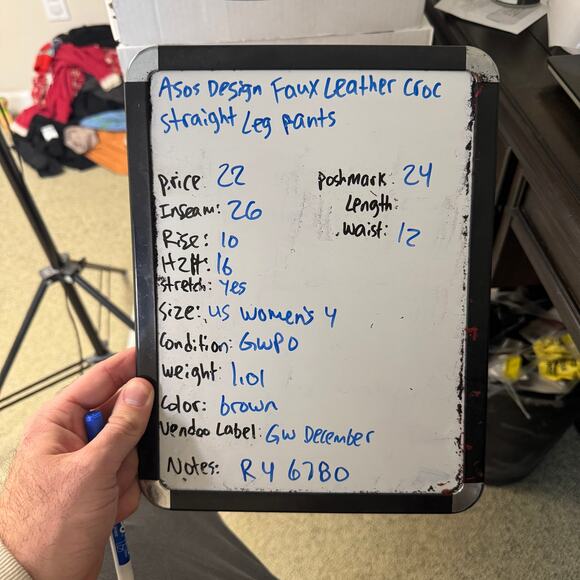 Asos Design Faux Leather Croc
Straight Leg pants
Price: 22
Poshmark: 24
Inseam: 26
Length:
Rise: 10
Waist: 12
H2H: 16
Stretch: Yes
Size: US Women's 4
Condition: GWPO
Weight: 1.01
Color: brown
Vendoo Label: GW December
Notes: R4 6780